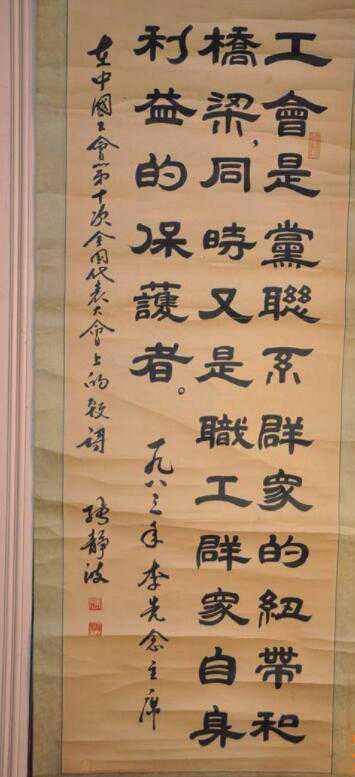 工會是黨聯系群衆的紐帶和
橋梁，同時又是職工群衆自身
利益的保護者。
一九八三年李先念主席
在中國工會第十次全国代表大會上的致詞
張靜波